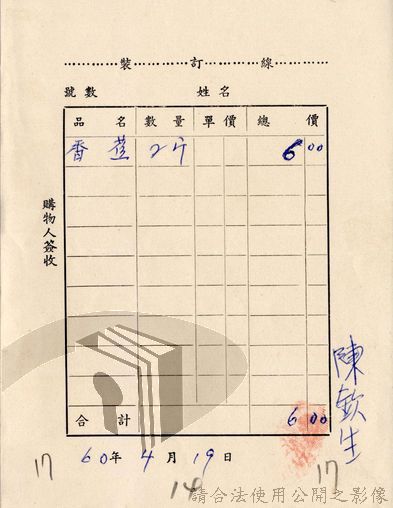 裝訂線
號數 姓名
品名 數量 單價 總價
香蕉 2斤 6 00
購物人簽收
合計 6 00
陳欽生
60年4月19日
17
14
17
請合法使用公開之影像